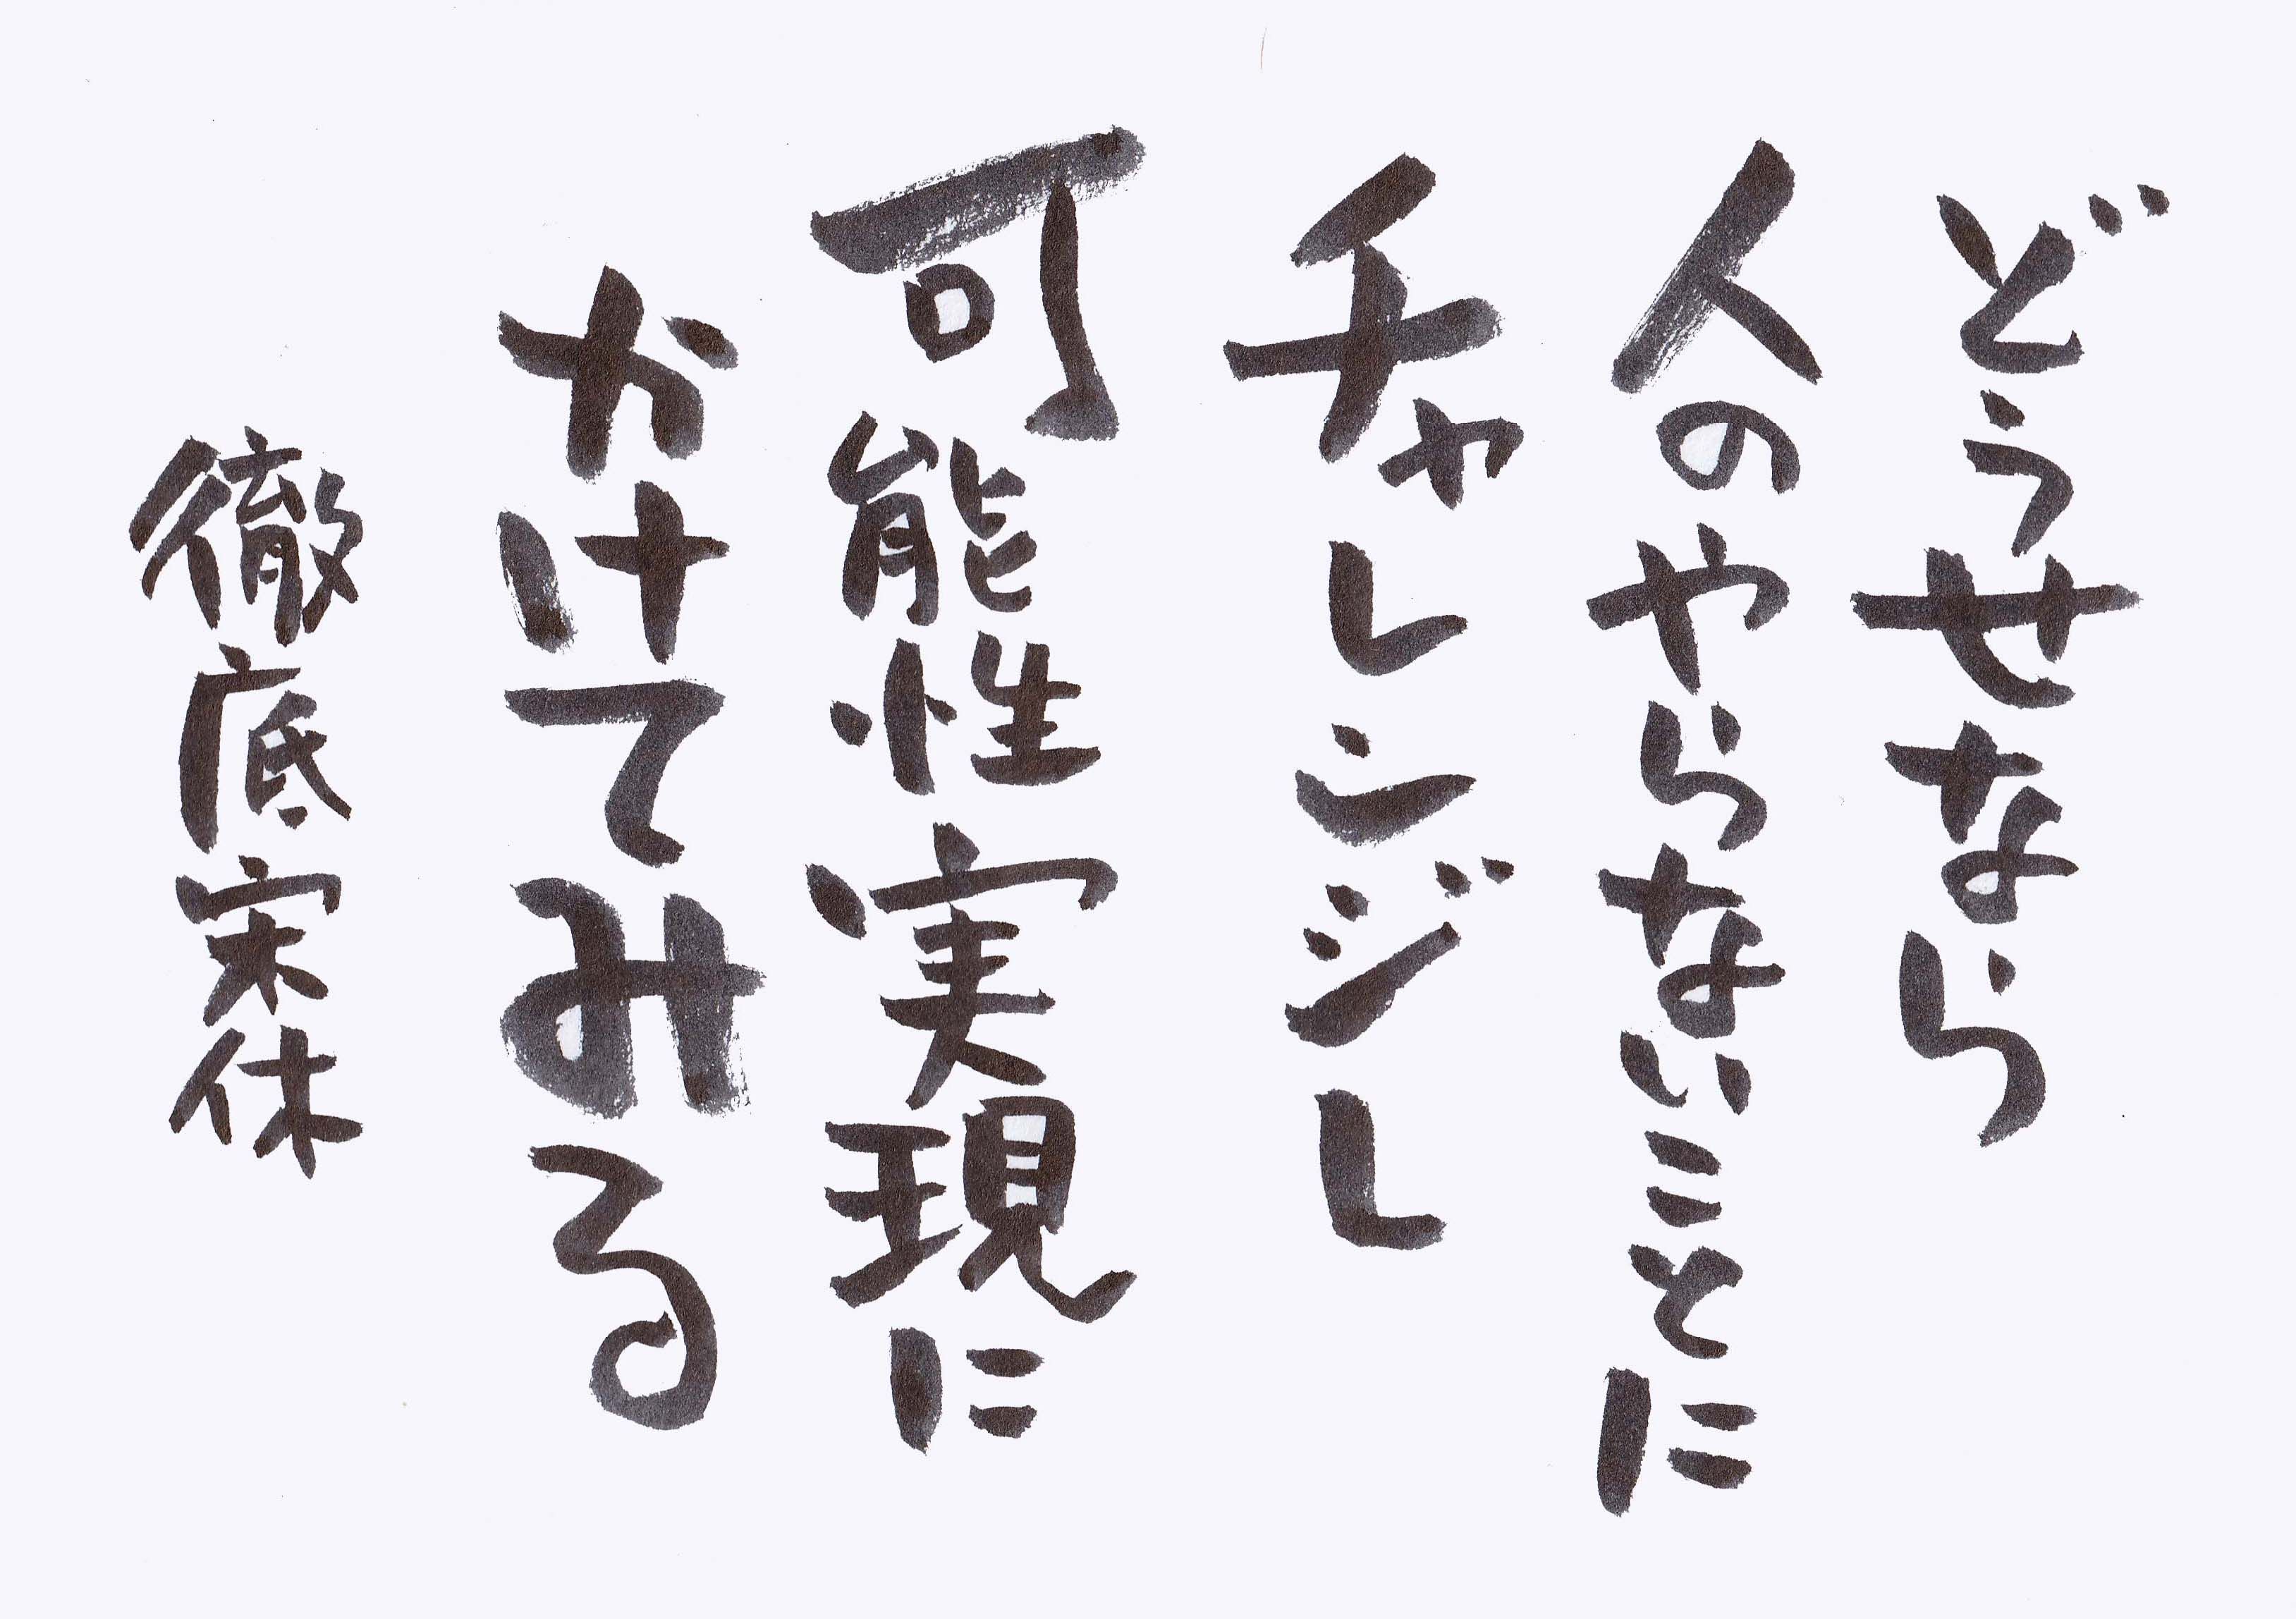 どうせなら
人のやらないことに
チャレンジし
可能性実現に
かけてみる
徹底宋休